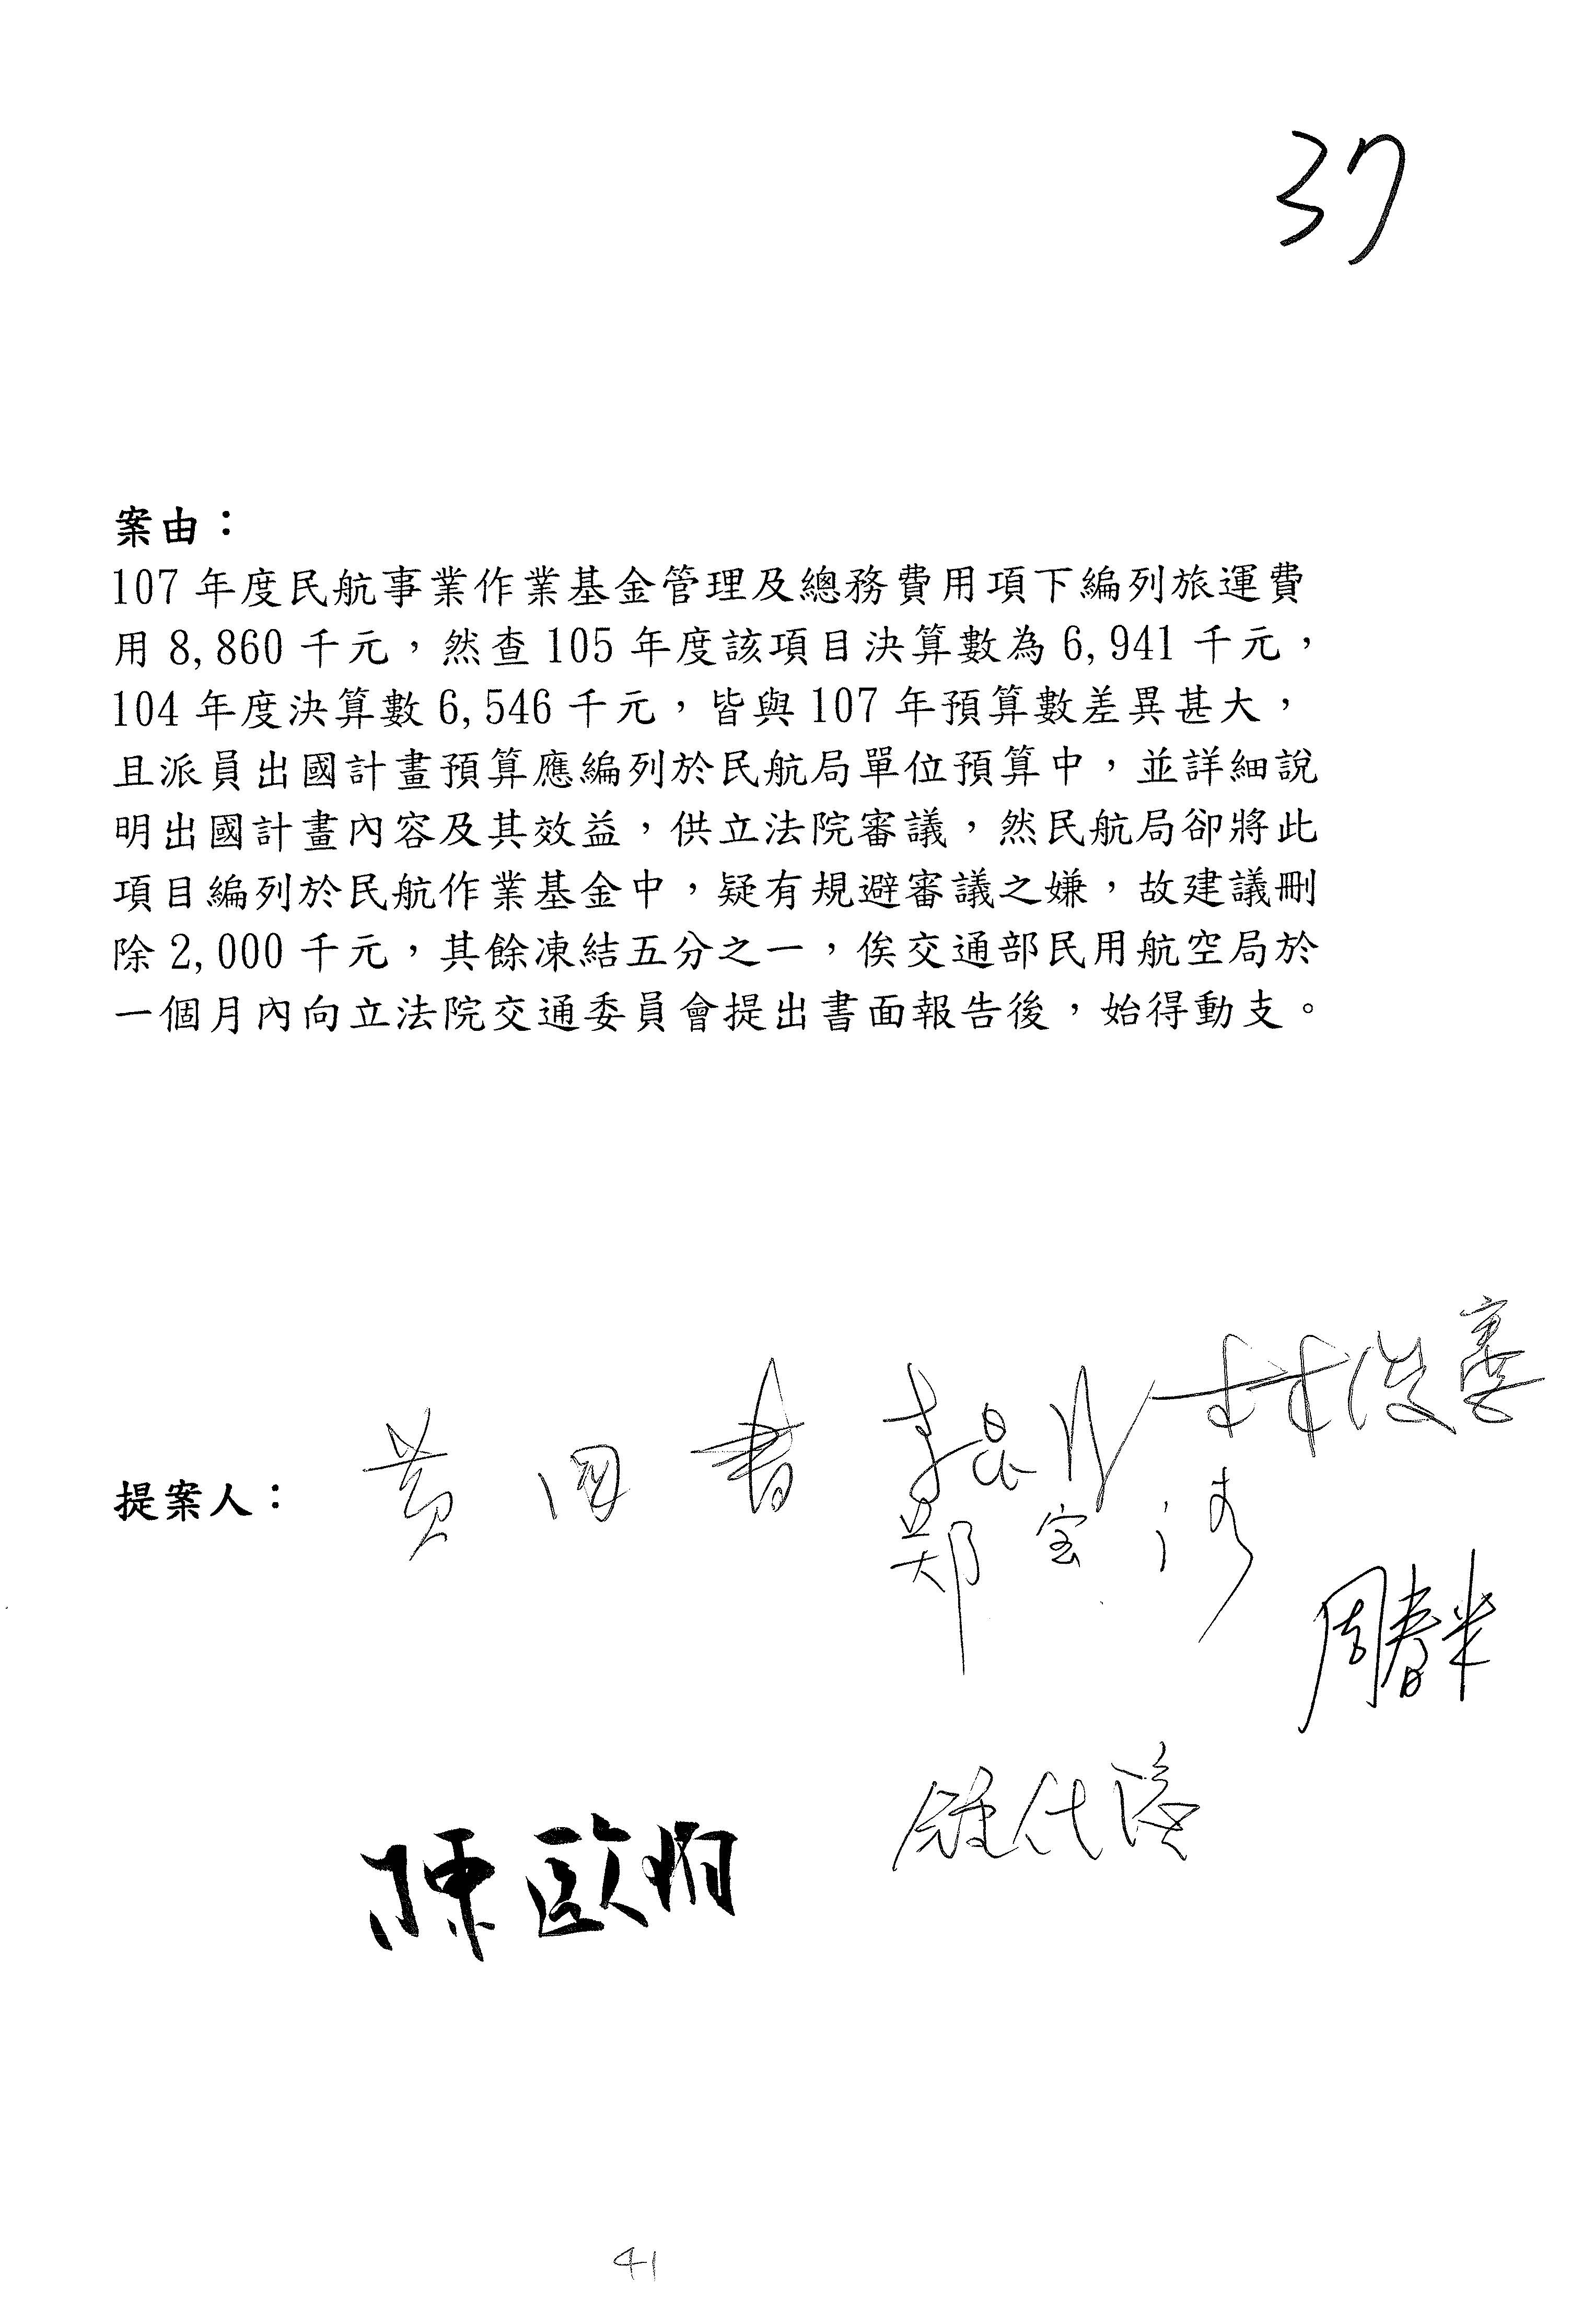 37
案由：
107 年度民航事業作業基金管理及總務費用項下編列旅運費
用 8,860 千元，然查 105 年度該項目決算數為 6,941 千元，
104 年度決算數 6,546 千元，皆與 107 年預算數差異甚大，
且派員出國計畫預算應編列於民航局單位預算中，並詳細說
明出國計畫內容及其效益，供立法院審議，然民航局卻將此
項目編列於民航作業基金中，疑有規避審議之嫌，故建議刪
除 2,000 千元，其餘凍結五分之一，俟交通部民用航空局於
一個月內向立法院交通委員會提出書面報告後，始得動支。
林俊憲
提案人： 黃國書 李昆澤
鄭宝清
周春米
陳歐珀